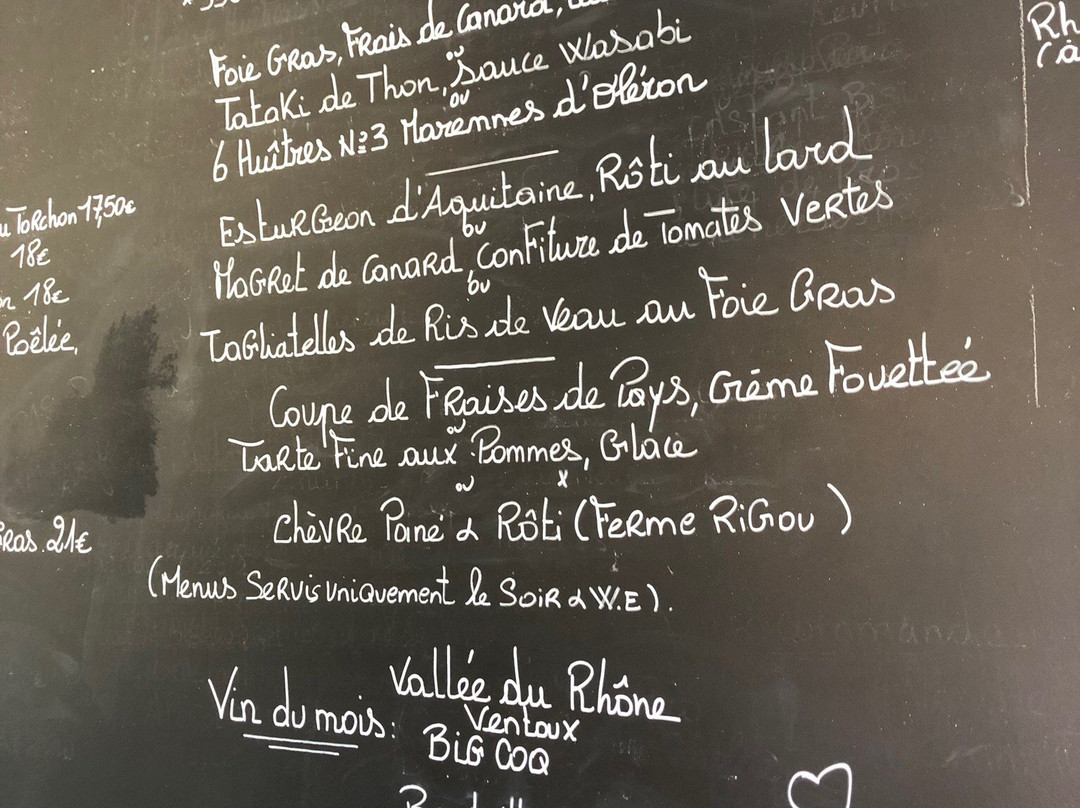 Foie Gras, Frais de Canard,
ou
Tataki de Thon, Sauce Wasabi
ou
6 Huîtres N°3 Marennes d'Oléron
Esturgeon d'Aquitaine, Rôti au lard
ou
Magret de Canard, Confiture de Tomates Vertes
ou
Tagliatelles de Ris de Veau au Foie Gras
Coupe de Fraises de Pays, Crème Fouetteé
ou
Tarte Fine aux Pommes, Glace
ou x
Chèvre Pané & Rôti (Ferme RiGou)
(Menus Servis uniquement le Soir & W.E).
Vin du mois: Vallée du Rhône
Ventoux
BiG COQ
Torchon 17,50€
18€
18€
Poêlée,
21€
Rh
(à